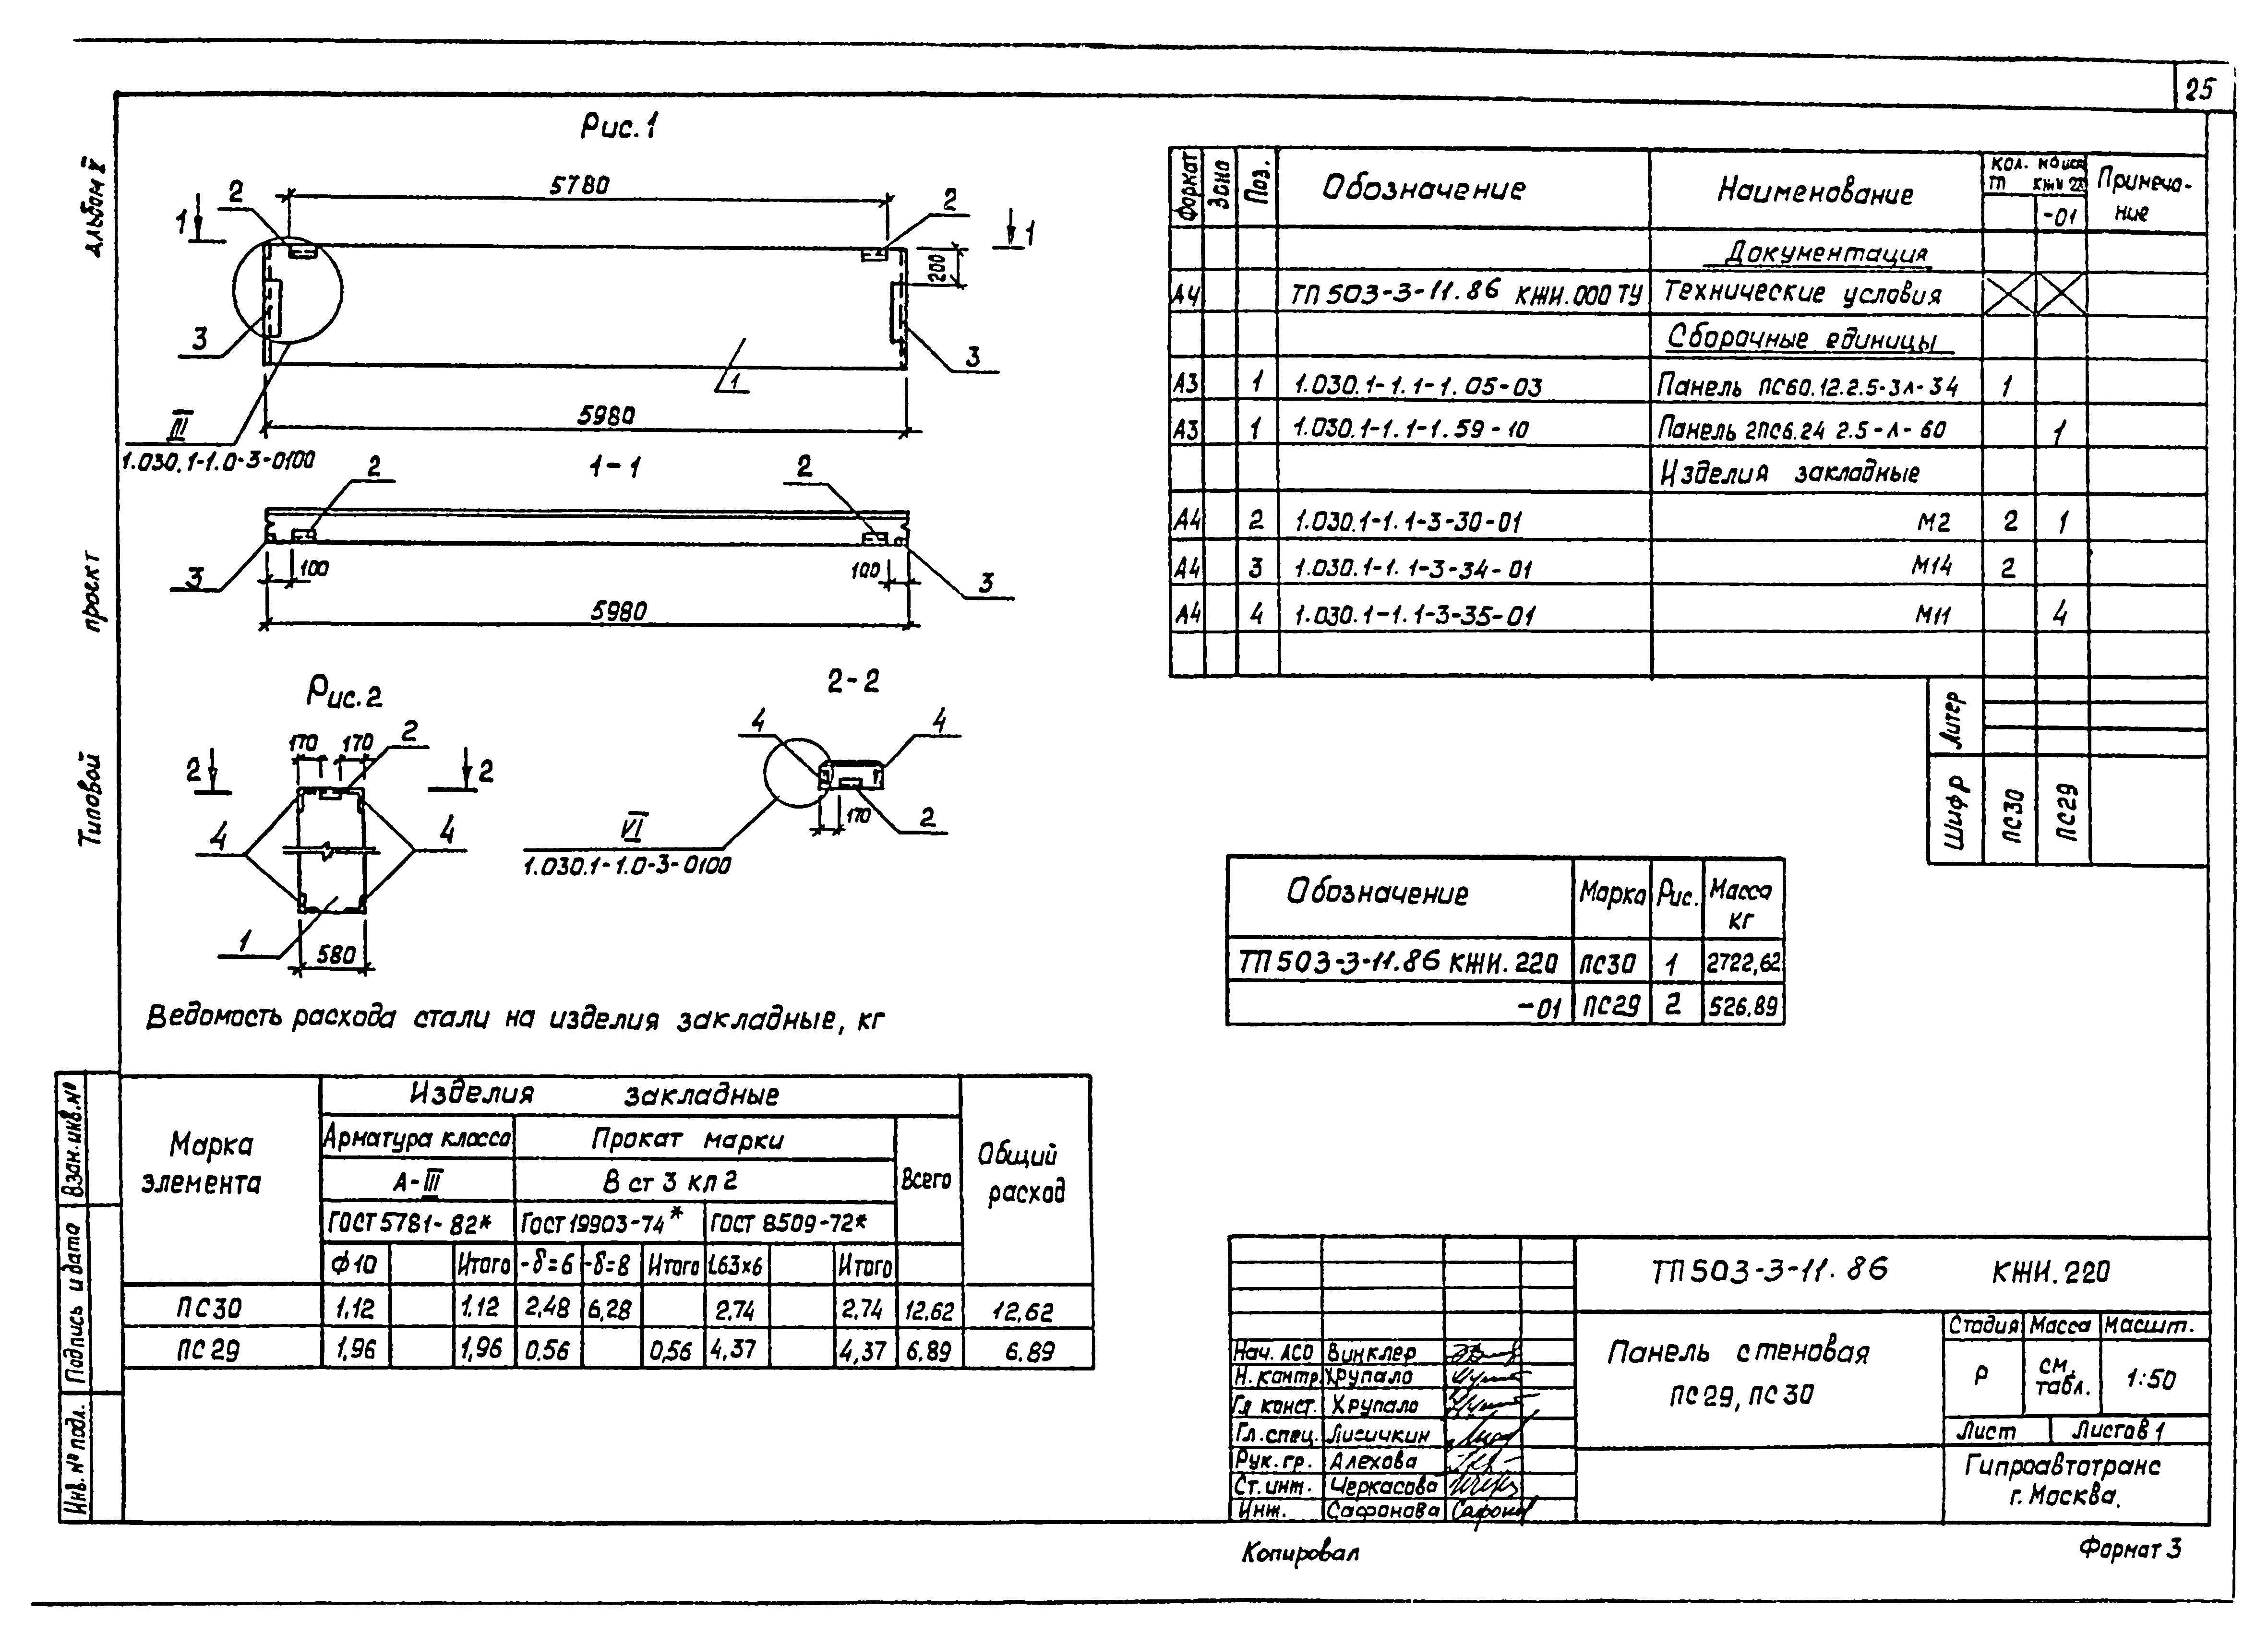 25
Альбом V
проект
Типовой
Рис. 1
5780
2
2
1
1
200
3
3
1
5980
III
1.030.1-1.0-3-0100
1-1
2
2
3
100
100
3
5980
Рис. 2
170
170
2
2
2
4
4
1
580
2-2
4
4
170
2
VI
1.030.1-1.0-3-0100
Формат
Зона
Поз.
Обозначение
Наименование
Кол. на исп.
-01
Примеча-
ние
Документация
А4 ТП 503-3-11.86 КЖИ.000 ТУ Технические условия
Сборочные единицы
А3 1 1.030.1-1.1-1.05-03 Панель ПС60.12.2.5-3Л-34 1
А3 1 1.030.1-1.1-1.59-10 Панель 2ПС6.24 2.5-Л-60 1
Изделия закладные
А4 2 1.030.1-1.1-3-30-01 М2 2 1
А4 3 1.030.1-1.1-3-34-01 М14 2
А4 4 1.030.1-1.1-3-35-01 М11 4
Литер
Шифр
ПС30
ПС29
Обозначение Марка Рис. Масса
кг
ТП 503-3-11.86 КЖИ.220 ПС30 1 2722,62
-01 ПС29 2 526.89
Ведомость расхода стали на изделия закладные, кг
Марка
элемента
Изделия закладные
Общий
расход
Арматура класса Прокат марки
Всего
А-III В ст 3 кп 2
ГОСТ 5781-82* ГОСТ 19903-74* ГОСТ 8509-72*
Ф10 Итого -δ=6 -δ=8 Итого L63×6 Итого
ПС30 1,12 1,12 2,48 6,28 2,74 2,74 12,62 12,62
ПС29 1,96 1,96 0,56 0,56 4,37 4,37 6.89 6.89
Взам. инв. №
Подпись и дата
Инв. № подл.
ТП 503-3-11.86 КЖИ.220
Панель стеновая
ПС29, ПС30
Стадия Масса Масшт.
Р см. табл. 1:50
Лист Листов 1
Гипроавтотранс
г. Москва.
Нач. АСО Винклер
Н. контр. Хрупало
Гл конст. Хрупало
Гл. спец. Лисичкин
Рук. гр. Алехова
Ст. инт. Черкасова
Инт. Сафонова Сафонов
Копировал
Формат 3